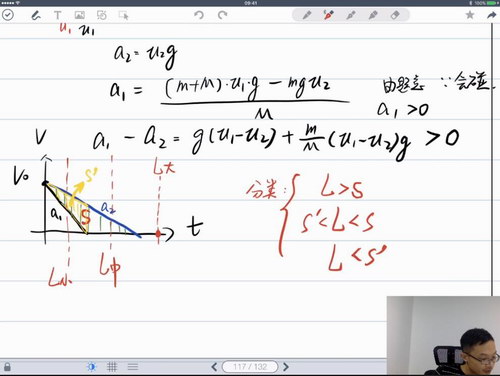 09:41
100%
u₁ u₁
a₂ = u₂g
a₁ = (m+M)·u₁·g − mgu₂ / M
由题意 ∵会碰.
a₁>0
a₁ − a₂ = g(u₁−u₂) + m/M (u₁−u₂)g > 0
V
V₀
S'
a₁
S
a₂
t
L小
L中
L大
分类:
L>S
S'<L<S
L<S'
117 / 132